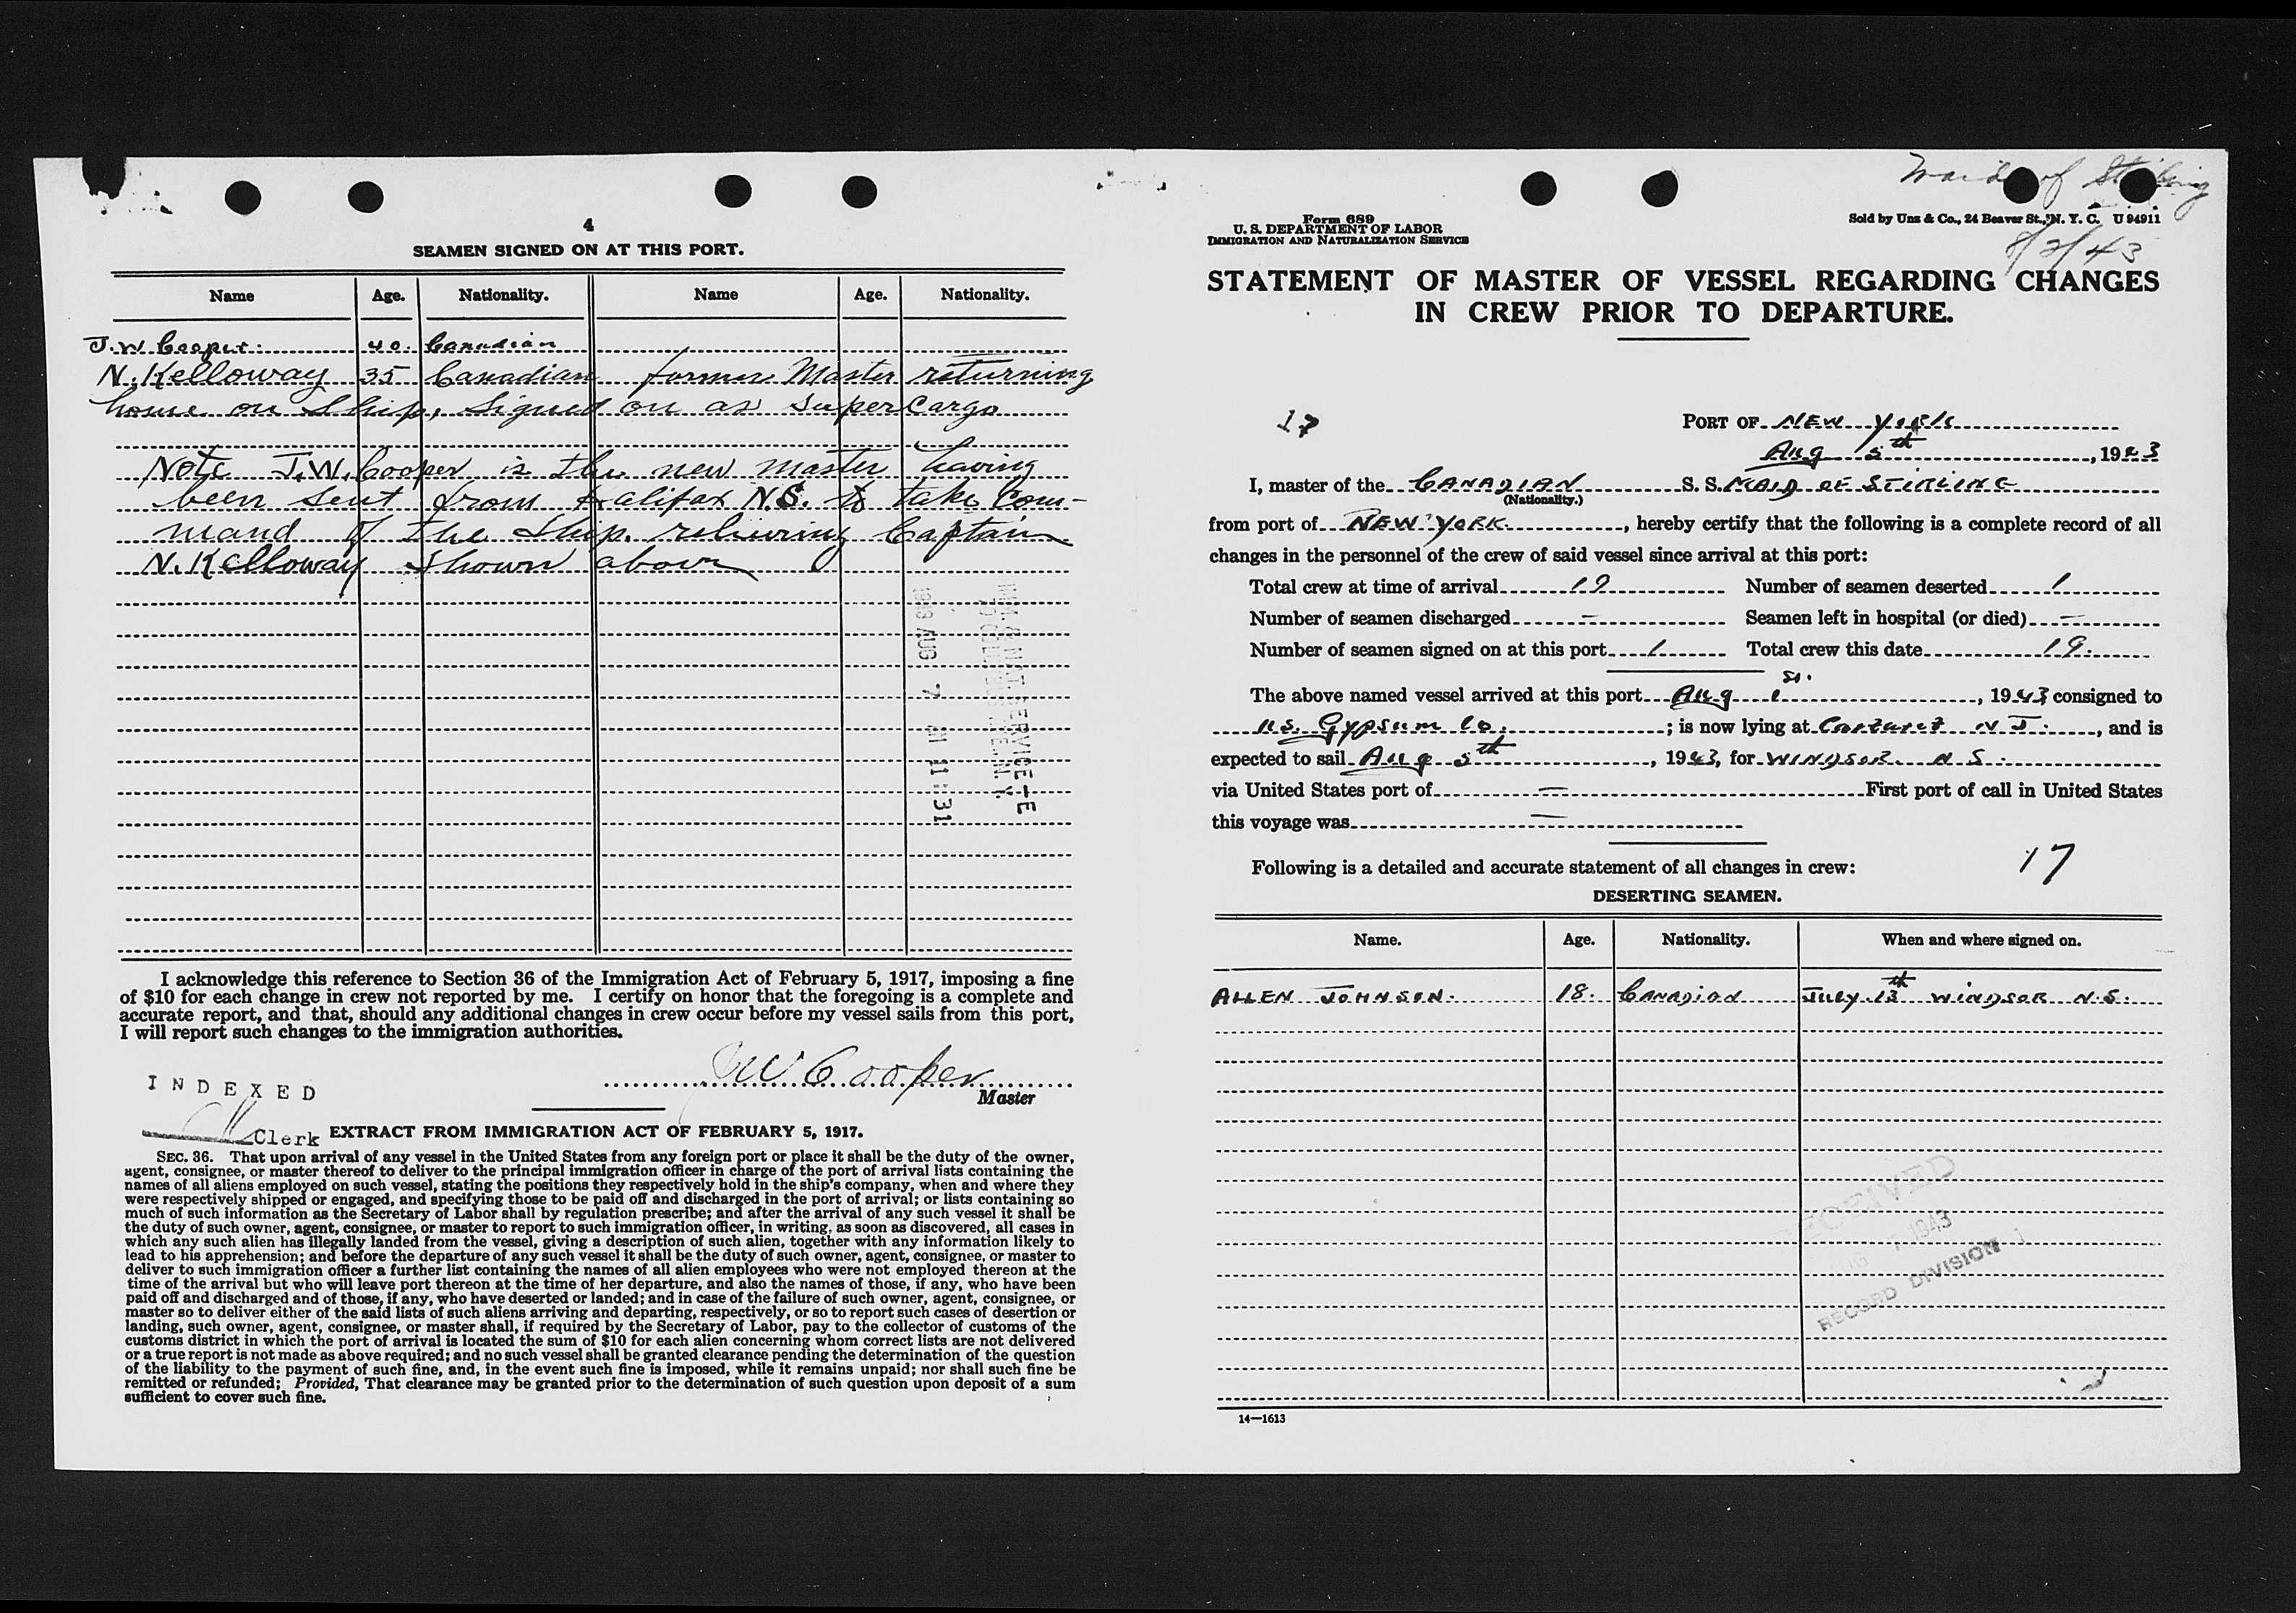 4
SEAMEN SIGNED ON AT THIS PORT.
Name Age. Nationality. Name Age. Nationality.
J. W. Cooper. 40. Canadian
N. Kelloway 35 Canadian former Master returning
home on Ship, Signed on as super Cargo
Note J. W. Cooper is the new master having
been sent from Halifax N.S. to take Com-
mand of the Ship relieving Captain
N. Kelloway shown above
1943 AUG 7 AM 11:31
I acknowledge this reference to Section 36 of the Immigration Act of February 5, 1917, imposing a fine
of $10 for each change in crew not reported by me. I certify on honor that the foregoing is a complete and
accurate report, and that, should any additional changes in crew occur before my vessel sails from this port,
I will report such changes to the immigration authorities.
J W Cooper
Master
INDEXED
Clerk
EXTRACT FROM IMMIGRATION ACT OF FEBRUARY 5, 1917.
SEC. 36. That upon arrival of any vessel in the United States from any foreign port or place it shall be the duty of the owner,
agent, consignee, or master thereof to deliver to the principal immigration officer in charge of the port of arrival lists containing the
names of all aliens employed on such vessel, stating the positions they respectively hold in the ship's company, when and where they
were respectively shipped or engaged, and specifying those to be paid off and discharged in the port of arrival; or lists containing so
much of such information as the Secretary of Labor shall by regulation prescribe; and after the arrival of any such vessel it shall be
the duty of such owner, agent, consignee, or master to report to such immigration officer, in writing, as soon as discovered, all cases in
which any such alien has illegally landed from the vessel, giving a description of such alien, together with any information likely to
lead to his apprehension; and before the departure of any such vessel it shall be the duty of such owner, agent, consignee, or master to
deliver to such immigration officer a further list containing the names of all alien employees who were not employed thereon at the
time of the arrival but who will leave port thereon at the time of her departure, and also the names of those, if any, who have been
paid off and discharged and of those, if any, who have deserted or landed; and in case of the failure of such owner, agent, consignee, or
master so to deliver either of the said lists of such aliens arriving and departing, respectively, or so to report such cases of desertion or
landing, such owner, agent, consignee, or master shall, if required by the Secretary of Labor, pay to the collector of customs of the
customs district in which the port of arrival is located the sum of $10 for each alien concerning whom correct lists are not delivered
or a true report is not made as above required; and no such vessel shall be granted clearance pending the determination of the question
of the liability to the payment of such fine, and, in the event such fine is imposed, while it remains unpaid; nor shall such fine be
remitted or refunded; Provided, That clearance may be granted prior to the determination of such question upon deposit of a sum
sufficient to cover such fine.
Maid of Stirling
Form 689
U. S. DEPARTMENT OF LABOR
IMMIGRATION AND NATURALIZATION SERVICE
Sold by Unz & Co., 24 Beaver St., N. Y. C. U 94911
8/2/43
STATEMENT OF MASTER OF VESSEL REGARDING CHANGES
IN CREW PRIOR TO DEPARTURE.
17
PORT OF NEW YORK
Aug 5th, 1943
I, master of the CANADIAN S. S. MAID OF STIRLING
(Nationality.)
from port of NEW YORK, hereby certify that the following is a complete record of all
changes in the personnel of the crew of said vessel since arrival at this port:
Total crew at time of arrival 19 Number of seamen deserted 1
Number of seamen discharged - Seamen left in hospital (or died) -
Number of seamen signed on at this port 1 Total crew this date 19.
The above named vessel arrived at this port Aug 1st, 1943 consigned to
U.S. Gypsum Co.; is now lying at Carteret N J., and is
expected to sail Aug 5th, 1943, for WINDSOR N S.
via United States port of — First port of call in United States
this voyage was —
Following is a detailed and accurate statement of all changes in crew:
17
DESERTING SEAMEN.
Name. Age. Nationality. When and where signed on.
ALLEN JOHNSON. 18. CANADIAN July 13th WINDSOR N.S.
RECEIVED
AUG 7 1943
RECORD DIVISION 1
14—1613